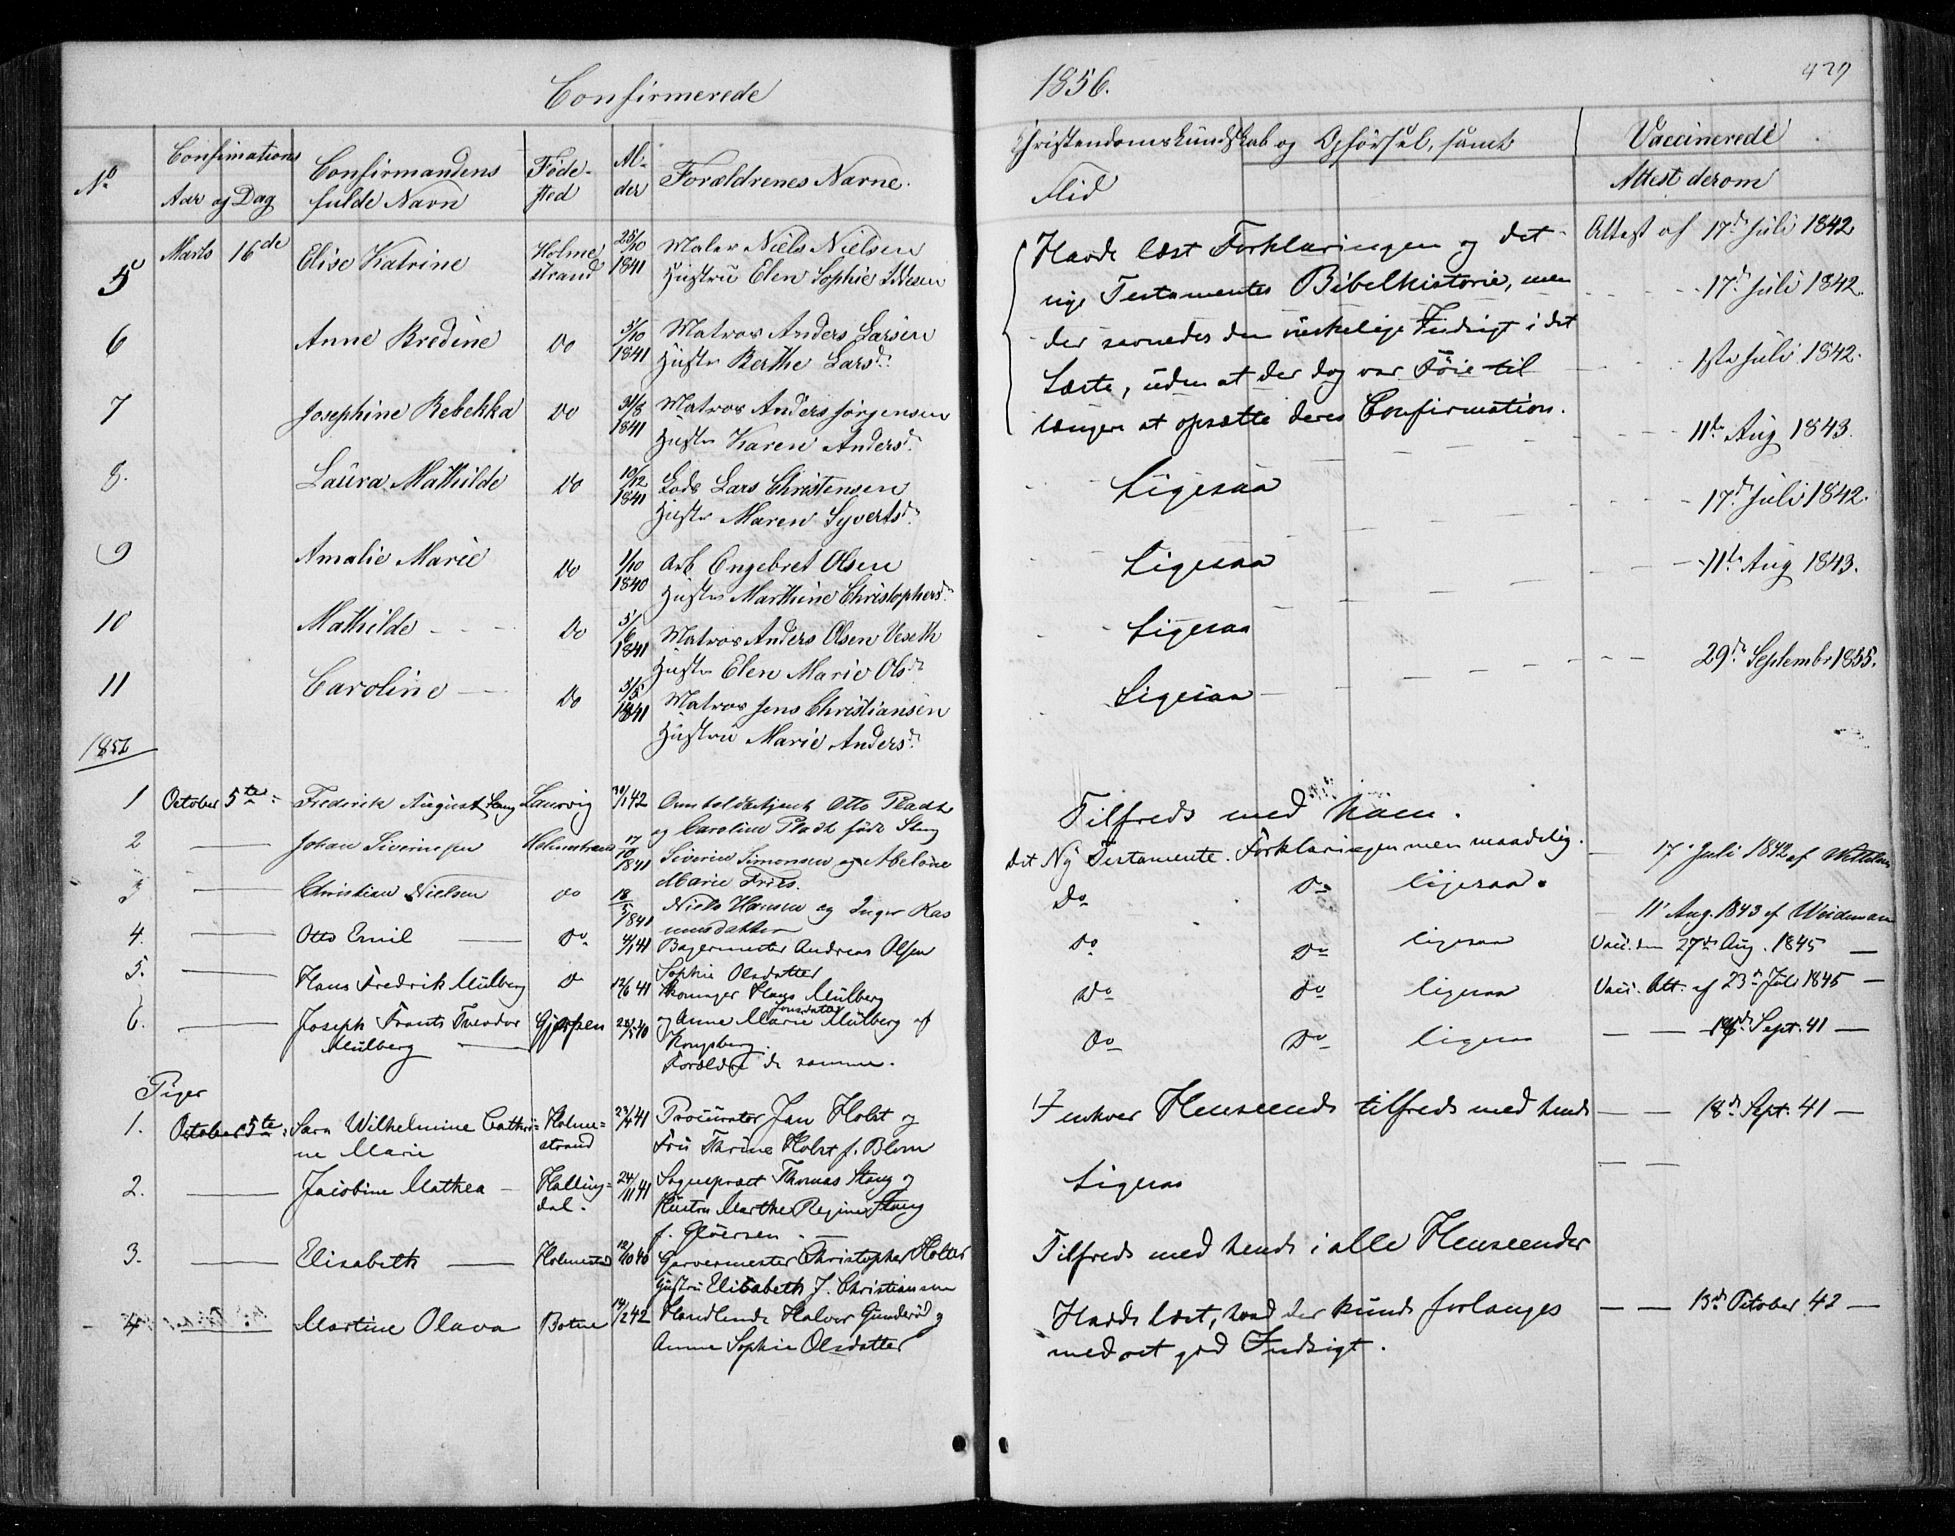 Confirmerede
1856.
429
No
Confirmations
Aar og Dag
Confirmandens
fulde Navn
Føde-
sted
Al-
der
Forældrenes Navne.
Christendomskundskab og Opførsel, samt
Flid
Vaccinerede
Attest derom
5 Marts 16de Elise Katrine Holme 28/10 Maler Niels Nielsen
strand 1841 Hustru Elen Sophie
6 Anne Bredine Do 5/10 Matros Anders Larsen
1841 Hustr Berthe Larsd.
7 Josephine Rebekka Do 31/8 Matros Anders Jörgensen
1841 Hustr Karen Andersd.
8. Laura Mathilde Do 10/12 Lods Lars Christensen
1841 Hustr Maren Syvertsd.
9 Amalie Marie Do 1/10 Arb Engebret Olsen
1840 Hustr Marthine Christophersd.
10 Mathilde Do 5/6 Matros Anders Olsen Veseth
1841 Hustr Elen Marie Olsd.
11 Caroline Do 3/5 Matros Jens Christiansen
1841 Hustru Marie Andersd.
Havde læst Forklaringen og det
nye Testamentes Bibelhistorie, men
der savnedes den virkelige Indsigt i det
Læste, uden at der dog var Föie til
længere at opsætte deres Confirmation.
Ligesaa
Ligesaa
Ligesaa
Ligesaa
Attest af 17de Juli 1842
17d Juli 1842
1ste Juli 1842.
11te Aug 1843.
17d Juli 1842.
11te Aug 1843.
29de Septembr 1855.
1856
1 October 5te Frederik August Stang Laurvig 30/1 42 Otto Pladt
og Caroline Pladt född Stang
2 Johan Siverinsen Holmestrand 17/10 1841 Siverin Simonsen og Abelone
Marie Friis.
3 Christian Nielsen do 18/5 1841 Niels Hansen og Inger Ras
musdatter
4. Otto Emil Do 4/1 41 Bagermester Andreas Olsen
Sophie Olsdatter
5. Hans Fredrik Mülberg Do 12/6 41 Skomager Hans Mülberg
6. Joseph Frants Theodor Gjerpen 28/5 40 og Anne Marie Jonsdatter Mülberg af
Mülberg Kongsberg.
Forældre de samme.
Tilfreds med ham.
Det Ny Testamente. Forklaringen men maadelig.
Do Do ligesaa.
Do Do ligesaa
Do Do ligesaa
Do Do ligesaa
17. Juli 1842 af
11' Aug. 1843 af Weideman
Vacc. den 27de Aug. 1845
Vacc. Att. af 23de Juli 1845
Sept. 41
Piger
1. October 5te Sara Wilhelmine Cathri- Holme- 23/4 41 Procurator Jan Holst og
ne Marie strand Fru Thrine Holst f. Blom
2. Jacobine Mathea Halling- 24/11 41 Sognepræst Thomas Stang og
dal. Hustru Marthe Regine Stang
f. Glöersen
3. Elisabeth Holmestd 12/10 40 Garvermester Christopher Holter
Hustru Elisabeth f. Christiansen
4 Martine Olava Botne 14/2 42 Handlende Halvor Gunderöd og
Anne Sophie Olsdatter
I enhver Henseende tilfreds med hende 18d Sept. 41
Ligesaa
Tilfreds med hende i alle Henseender
Havde læst, hvad der kunde forlanges 13d October 42
med ret god Indsigt.